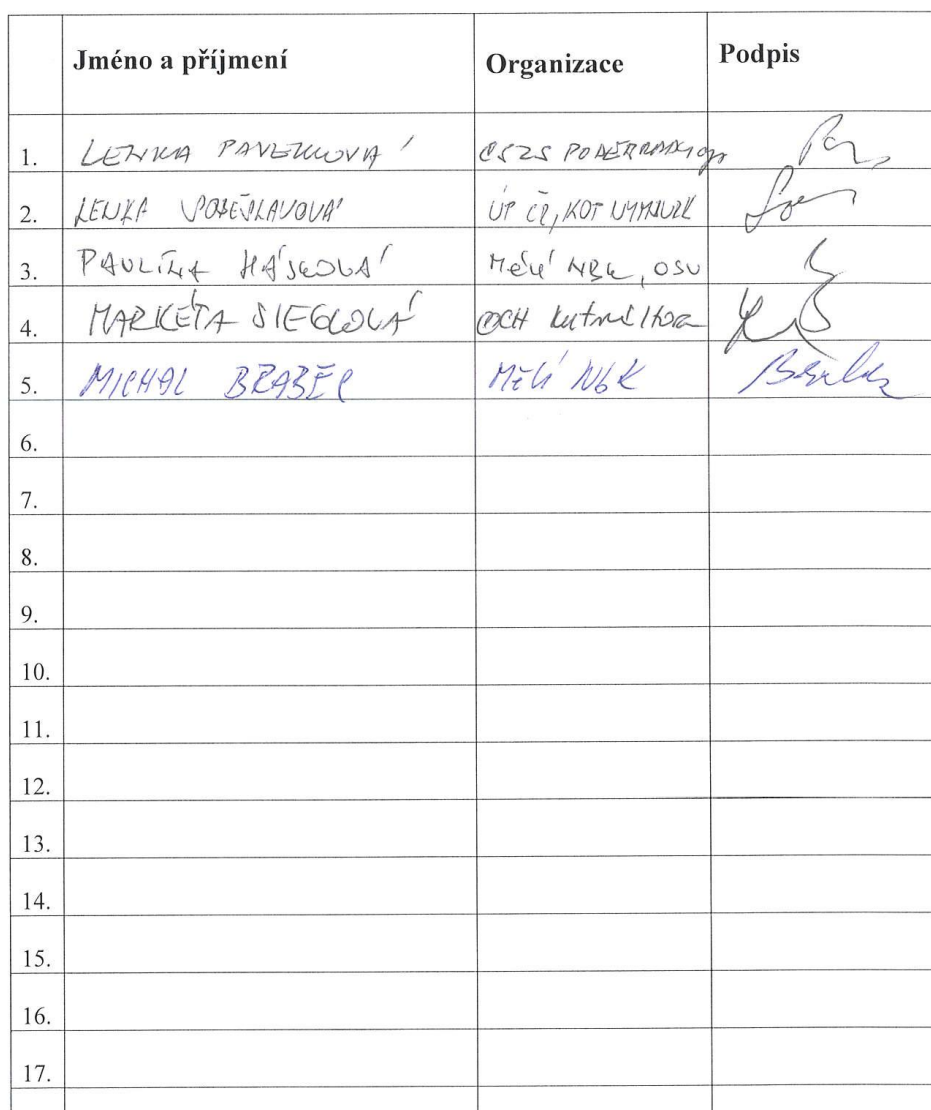 Jméno a příjmení Organizace Podpis
1. LENKA PAVELKOVÁ
2. LENKA ÚP ČR, KOP NYMBURK
3. PAVLÍNA HÁSKOVÁ MěÚ NBK, OSV
4. MARKÉTA SIEGLOVÁ OCH Kutná Hora
5. MICHAL BRABEC MěÚ NBK
6.
7.
8.
9.
10.
11.
12.
13.
14.
15.
16.
17.